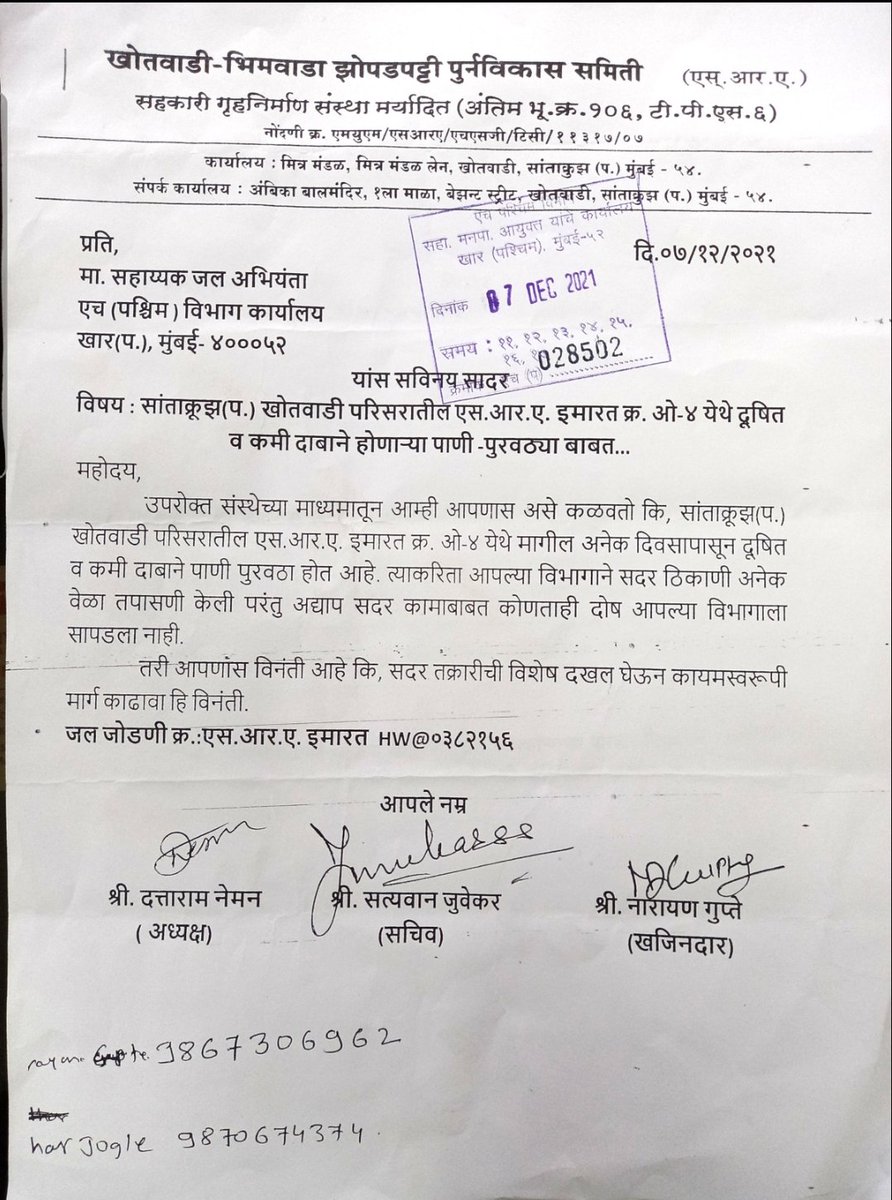 खोतवाडी-भिमवाडा झोपडपट्टी पुर्नविकास समिती (एस्.आर.ए.)
सहकारी गृहनिर्माण संस्था मर्यादित (अंतिम भू.क्र.१०६, टी.पी.एस.६)
नोंदणी क्र. एमयुएम/एसआरए/एचएसजी/टिसी/११३१७/०७
कार्यालय : मित्र मंडळ, मित्र मंडळ लेन, खोतवाडी, सांताकुझ (प.) मुंबई - ५४.
संपर्क कार्यालय : अंबिका बालमंदिर, १ला माळा, बेझन्ट स्ट्रीट, खोतवाडी, सांताकुझ (प.) मुंबई - ५४.
एच पश्चिम
सहा. मनपा. आयुक्त यांचे कार्यालय
खार (पश्चिम). मुंबई-५२
दिनांक 07 DEC 2021
समय : ११, १२, १३, १४, १५.
१६,
क्रमांक 028502
प्रति,
दि.०७/१२/२०२१
मा. सहाय्यक जल अभियंता
एच (पश्चिम ) विभाग कार्यालय
खार(प.), मुंबई- ४०००५२
यांस सविनय सादर
विषय : सांताक्रूझ(प.) खोतवाडी परिसरातील एस.आर.ए. इमारत क्र. ओ-४ येथे दूषित
व कमी दाबाने होणाऱ्या पाणी -पुरवठ्या बाबत...
महोदय,
उपरोक्त संस्थेच्या माध्यमातून आम्ही आपणास असे कळवतो कि, सांताक्रूझ(प.)
खोतवाडी परिसरातील एस.आर.ए. इमारत क्र. ओ-४ येथे मागील अनेक दिवसापासून दूषित
व कमी दाबाने पाणी पुरवठा होत आहे. त्याकरिता आपल्या विभागाने सदर ठिकाणी अनेक
वेळा तपासणी केली परंतु अद्याप सदर कामाबाबत कोणताही दोष आपल्या विभागाला
सापडला नाही.
तरी आपणांस विनंती आहे कि, सदर तक्रारीची विशेष दखल घेऊन कायमस्वरूपी
मार्ग काढावा हि विनंती.
जल जोडणी क्र.:एस.आर.ए. इमारत HW@०३८२१५६
आपले नम्र
श्री. दत्ताराम नेमन
श्री. सत्यवान जुवेकर
श्री. नारायण गुप्ते
( अध्यक्ष)
(सचिव)
(खजिनदार)
9867306962
har Jogle 9870674374.